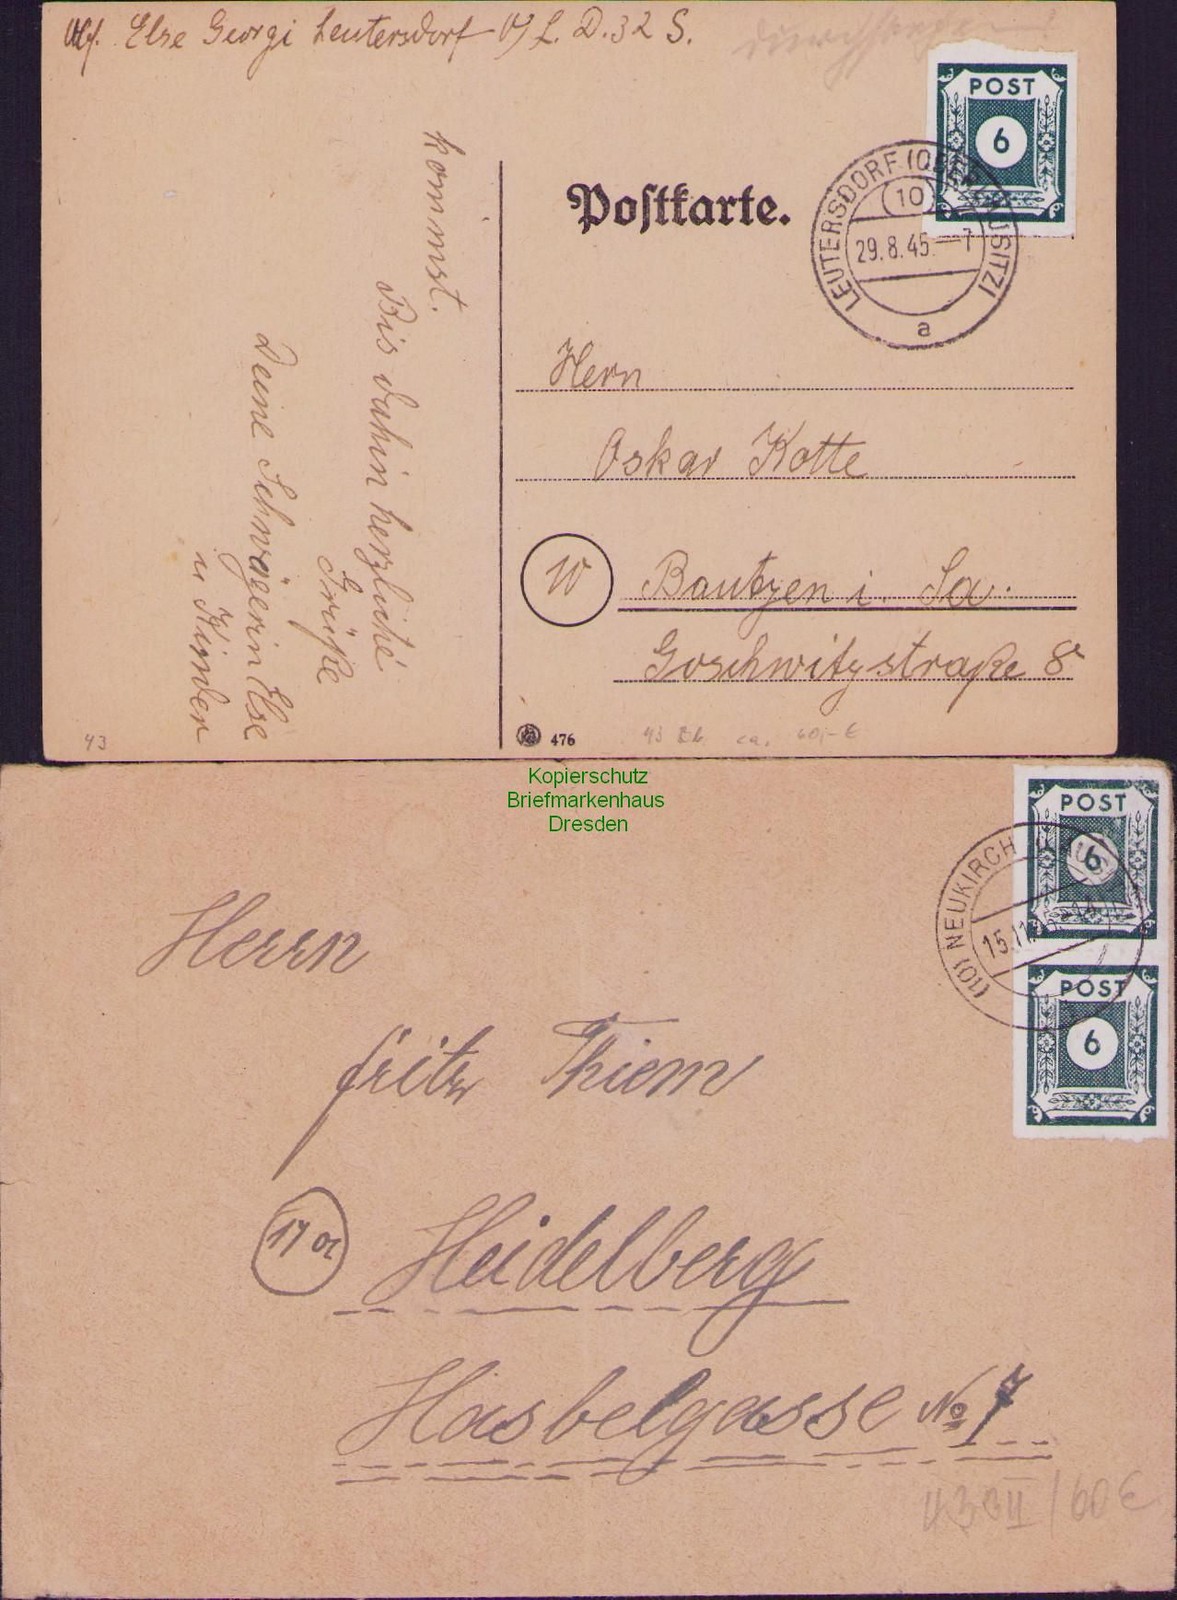 Abs. Else Georgi Leutersdorf O/L. D. 32 S.
POST
6
Postkarte.
LEUTERSDORF (OBERLAUSITZ)
(10)
29.8.45 - 7
a
kommst.
Bis dahin herzliche
Grüße
Deine Schwägerin Else
u Kinder
Hern
Oskar Kotte
Bautzen i. Sa.
Goschwitzstraße 8
43
476
43 ca. 60,- €
Kopierschutz
Briefmarkenhaus
Dresden
POST
6
(10) NEUKIRCH
15.11.
POST
6
Herrn
Fritz Thiem
17a
Heidelberg
Hasbelgasse No 7
/ 60 €